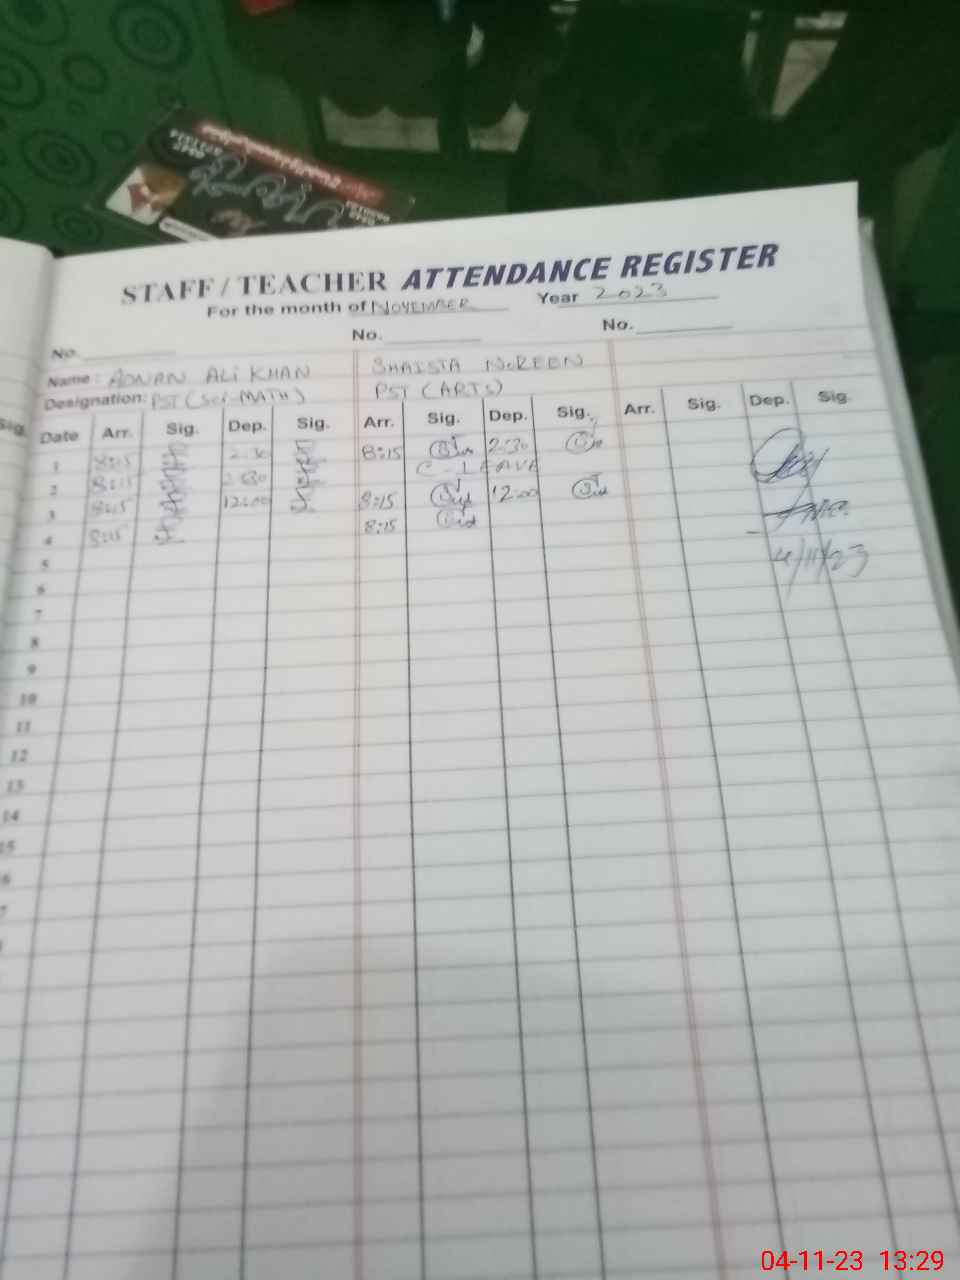 STAFF / TEACHER ATTENDANCE REGISTER
For the month of NOVEMBER Year 2023
No. No. No.
Name: ADNAN ALI KHAN SHAISTA NOREEN
Designation: PST (Sci-MATH) PST (ARTS)
Sig. Date Arr. Sig. Dep. Sig. Arr. Sig. Dep. Sig. Arr. Sig. Dep. Sig.
1 8:15 2:30 8:15 2:30
2 8:15 2:30 C-LEAVE
3 8:15 12:00 8:15 12:00
4 8:15 8:15
4/11/23
5
6
7
8
9
10
11
12
13
14
15
6
7
04-11-23 13:29